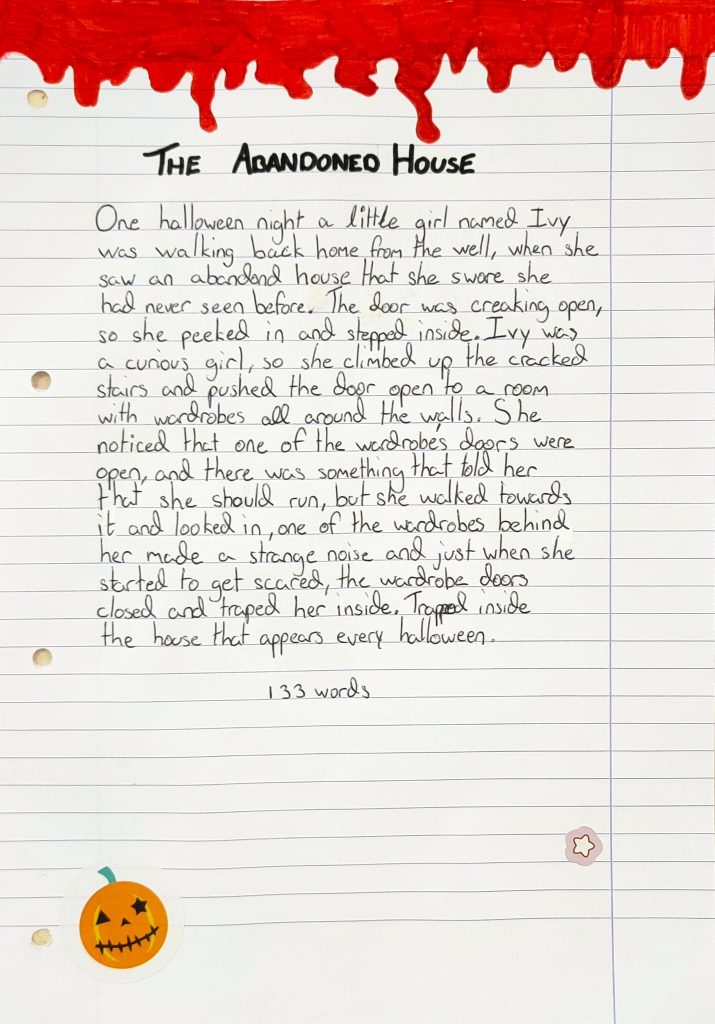 THE ABANDONED HOUSE
One halloween night a little girl named Ivy
was walking back home from the well, when she
saw an abandond house that she swore she
had never seen before. The door was creaking open,
so she peeked in and stepped inside. Ivy was
a curious girl, so she climbed up the cracked
stairs and pushed the door open to a room
with wardrobes all around the walls. She
noticed that one of the wardrobe's doors were
open, and there was something that told her
that she should run, but she walked towards
it and looked in, one of the wardrobes behind
her made a strange noise and just when she
started to get scared, the wardrobe doors
closed and traped her inside. Trapped inside
the house that appears every halloween.
133 words